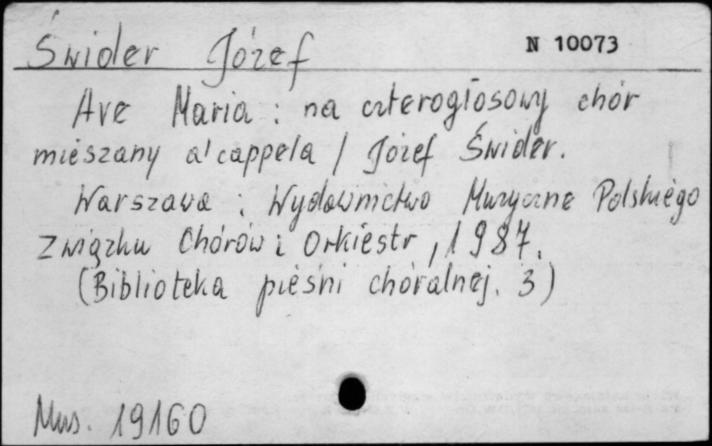 Świder Józef
N 10073
Ave Maria : na czterogłosowy chór
mieszany a'cappela / Józef Świder.
Warszawa : Wydawnictwo Muzyczne Polskiego
Związku Chórów i Orkiestr, 1987.
(Biblioteka pieśni chóralnej. 3)
Mus. 19160